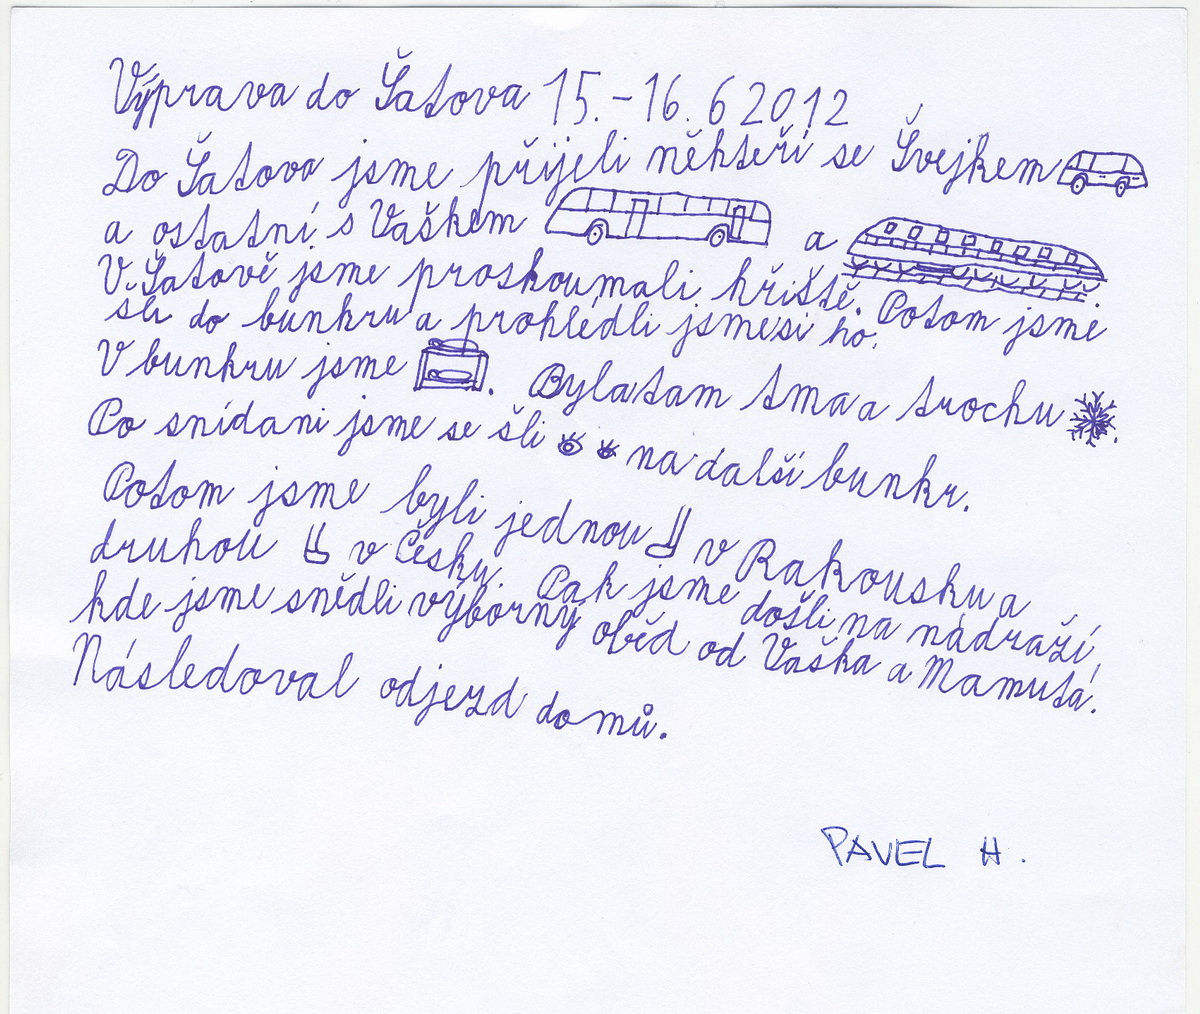 Výprava do Šatova 15.-16. 6 2012
Do Šatova jsme přijeli někteří se Švejkem
a ostatní s Vaškem a .
V Šatově jsme proskoumali hřiště. Potom jsme
šli do bunkru a prohlédli jsmesi ho.
V bunkru jsme . Bylatam tma a trochu .
Po snídani jsme se šli na další bunkr.
Potom jsme byli jednou v Rakousku a
druhou v Česku. Pak jsme došli na nádraží,
kde jsme snědli výborný oběd od Vaška a Mamuta.
Následoval odjezd domů.
PAVEL H.